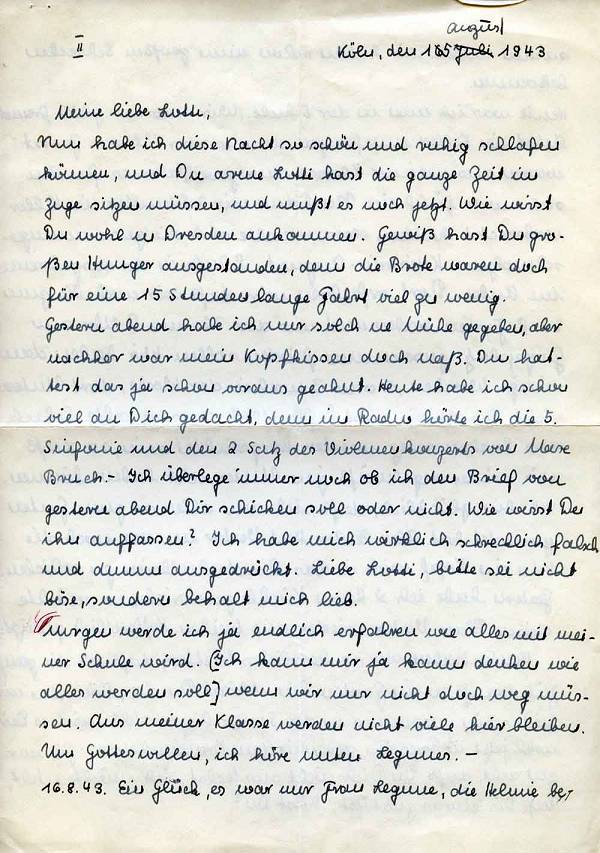 II
August
Köln, den 15 Juli 1943
Meine liebe Lotti,
Nun habe ich diese Nacht so schön und ruhig schlafen
können, und Du arme Lotti hast die ganze Zeit im
Zuge sitzen müssen, und mußt es noch jetzt. Wie wirst
Du wohl in Dresden ankommen. Gewiß hast Du gro-
ßen Hunger ausgestanden, denn die Brote waren doch
für eine 15 Stunden lange Fahrt viel zu wenig.
Gestern abend habe ich mir solch ne Mühe gegeben, aber
nachher war mein Kopfkissen doch naß. Du hat-
test das ja schon voraus geahnt. Heute habe ich schon
viel an Dich gedacht, denn im Radio hörte ich die 5.
Sinfonie und den 2 Satz des Violinenkonzerts von Max
Bruch.- Ich überlege immer noch ob ich den Brief von
gestern abend Dir schicken soll oder nicht. Wie wirst Du
ihn auffassen? Ich habe mich wirklich schrecklich falsch
und dumm ausgedrückt. Liebe Lotti, bitte sei nicht
böse, sondern behalt mich lieb.
Morgen werde ich ja endlich erfahren wie alles mit mei-
ner Schule wird. [Ich kann mir ja kaum denken wie
alles werden soll] wenn wir nur nicht doch weg müs-
sen. Aus meiner Klasse werden nicht viele hier bleiben.
Um Gotteswillen, ich höre unten Legumes. -
16.8.43. Ein Glück, es war nur Frau Legume, die Helmie be,-